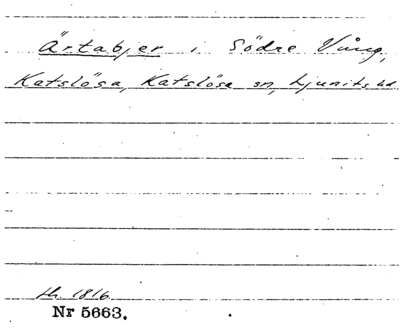 Ärtabjer i Södre Vång,
Katslösa, Katslösa sn, Ljunits hd
Lh. 1816
Nr 5663.